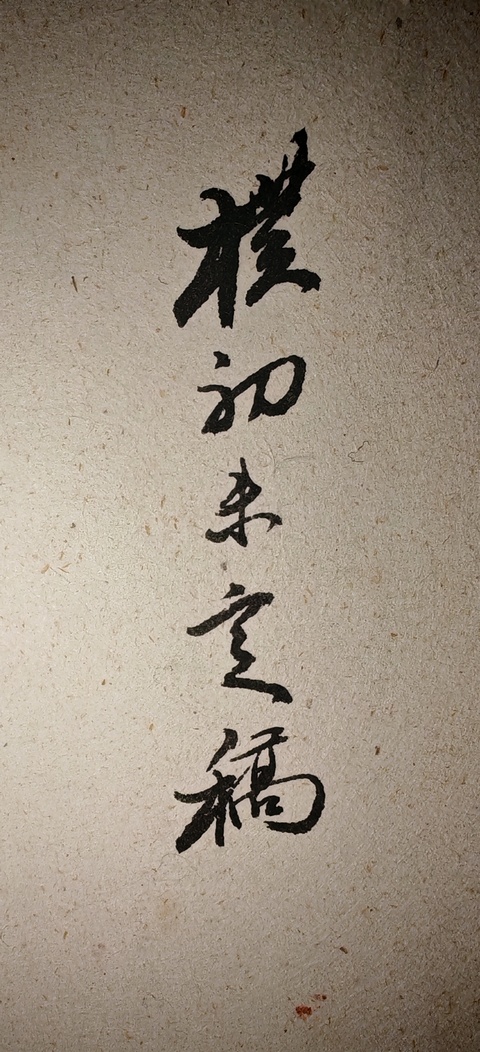 樸初未定稿